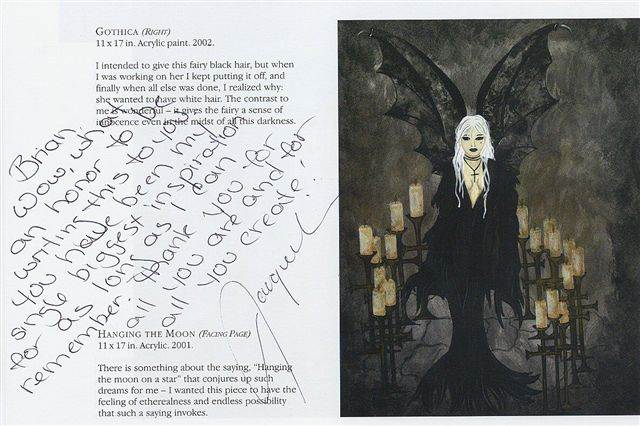 GOTHICA (RIGHT)
11 x 17 in. Acrylic paint. 2002.
I intended to give this fairy black hair, but when
I was working on her I kept putting it off, and
finally when all else was done, I realized why:
she wanted to have white hair. The contrast to
me is wonderful – it gives the fairy a sense of
innocence even in the midst of all this darkness.
Brian,
Wow, what
an honor to be
writing this to you
You have been my
single biggest inspiration
for as long as I can
remember. Thank you for
all you are and for
all you create!
HANGING THE MOON (FACING PAGE)
11 x 17 in. Acrylic. 2001.
There is something about the saying, “Hanging
the moon on a star” that conjures up such
dreams for me – I wanted this piece to have the
feeling of etherealness and endless possibility
that such a saying invokes.